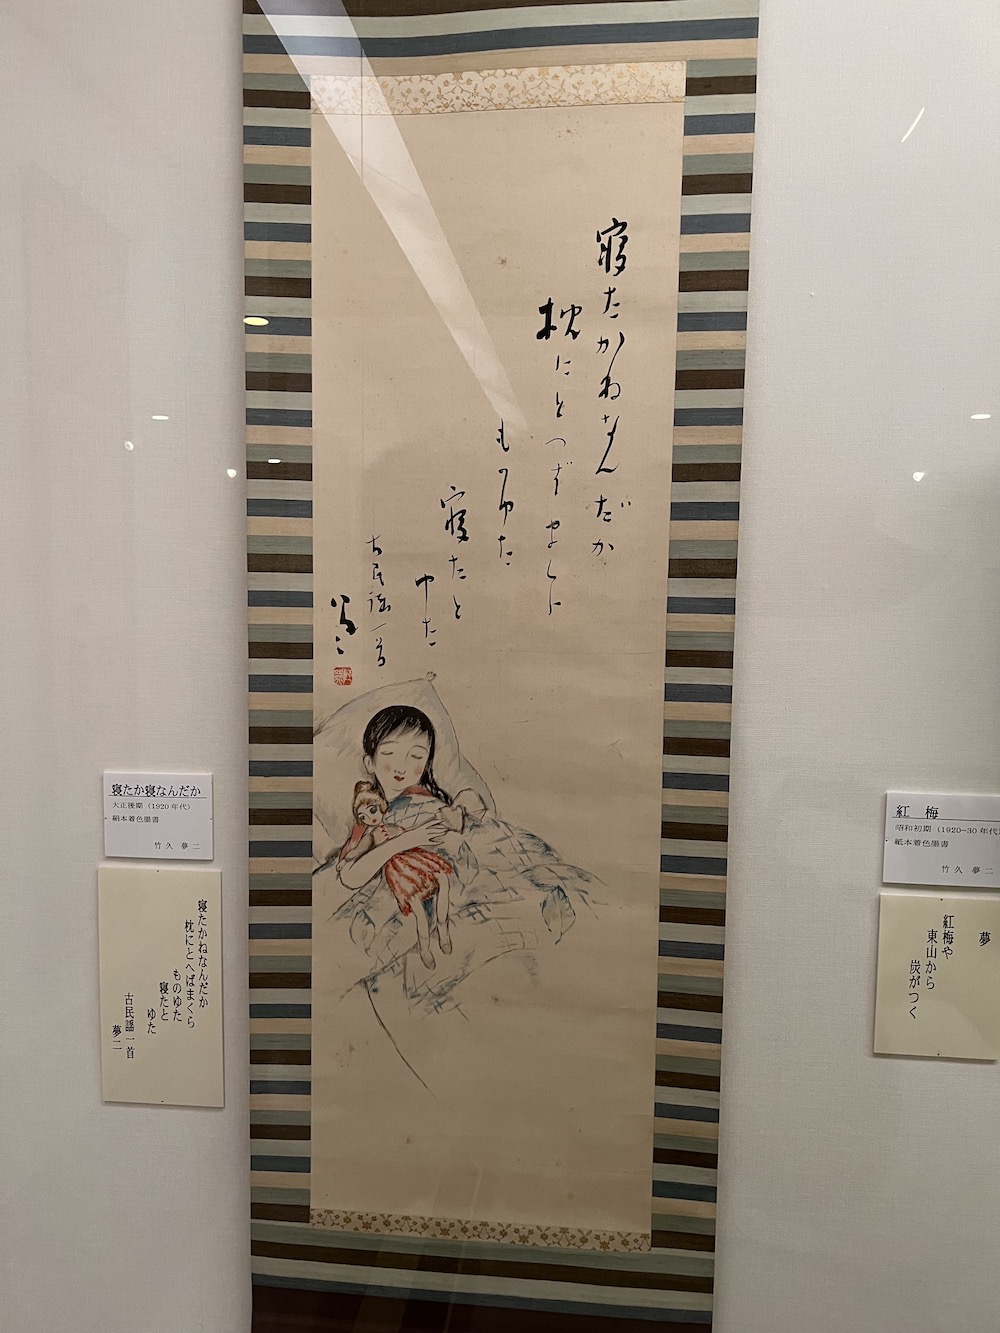 寝たかねなんだか
枕にとへばまくら
ものゆた
寝たと
ゆた
古民謡一首
夢二
寝たか寝なんだか
大正後期（1920年代）
絹本着色墨書
竹久 夢二
寝たかねなんだか
枕にとへばまくら
ものゆた
寝たと
ゆた
古民謡一首
夢二
紅 梅
昭和初期（1920−30年代）
紙本着色墨書
竹久 夢二
夢
紅梅や
東山から
炭がつく